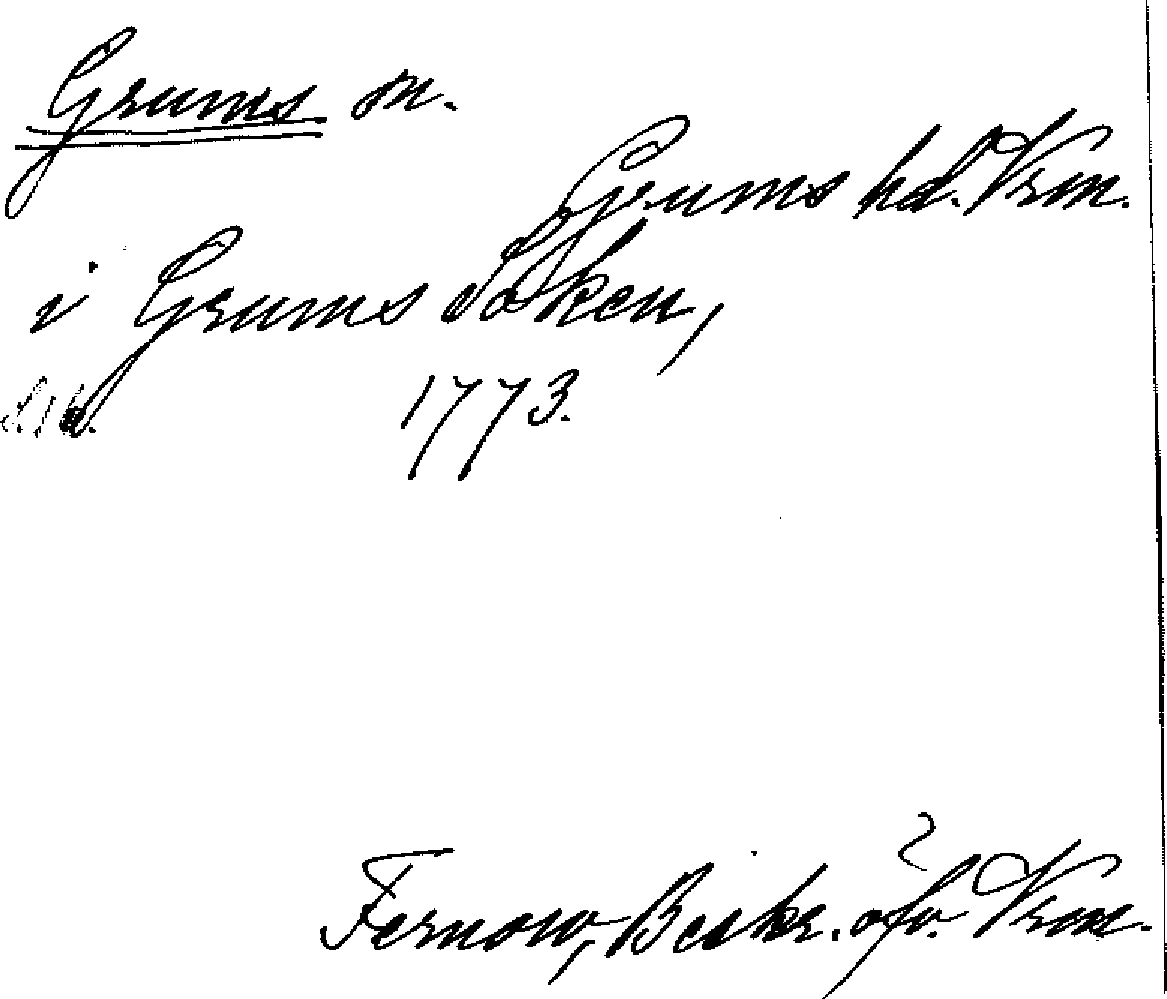 Grums sn.
Grums hd. Vrm.
i Grums Soken,
1773.
Fernow, Beskr. öfv. Vrm.